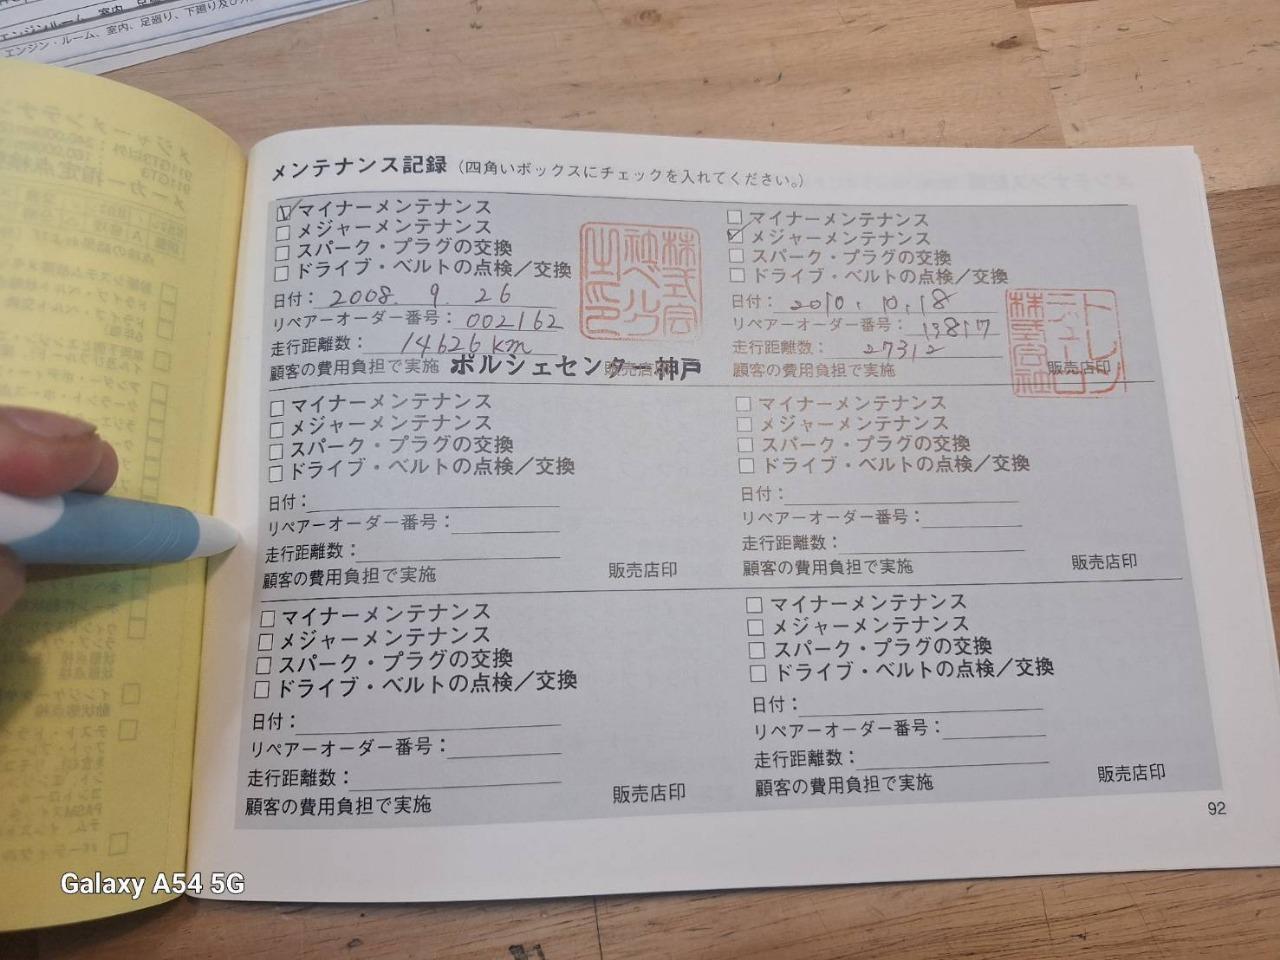 エンジン・ルーム、室内、足廻り、下廻り及び
メンテナンス記録（四角いボックスにチェックを入れてください。）
マイナーメンテナンス
メジャーメンテナンス
スパーク・プラグの交換
ドライブ・ベルトの点検／交換
日付：2008. 9. 26
リペアーオーダー番号：002162
走行距離数：14626km
顧客の費用負担で実施
販売店印
ポルシェセンター神戸
マイナーメンテナンス
メジャーメンテナンス
スパーク・プラグの交換
ドライブ・ベルトの点検／交換
日付：2010. 10. 18
リペアーオーダー番号：13817
走行距離数：27312
顧客の費用負担で実施
販売店印
マイナーメンテナンス
メジャーメンテナンス
スパーク・プラグの交換
ドライブ・ベルトの点検／交換
日付：
リペアーオーダー番号：
走行距離数：
顧客の費用負担で実施
販売店印
マイナーメンテナンス
メジャーメンテナンス
スパーク・プラグの交換
ドライブ・ベルトの点検／交換
日付：
リペアーオーダー番号：
走行距離数：
顧客の費用負担で実施
販売店印
マイナーメンテナンス
メジャーメンテナンス
スパーク・プラグの交換
ドライブ・ベルトの点検／交換
日付：
リペアーオーダー番号：
走行距離数：
顧客の費用負担で実施
販売店印
マイナーメンテナンス
メジャーメンテナンス
スパーク・プラグの交換
ドライブ・ベルトの点検／交換
日付：
リペアーオーダー番号：
走行距離数：
顧客の費用負担で実施
販売店印
92
Galaxy A54 5G